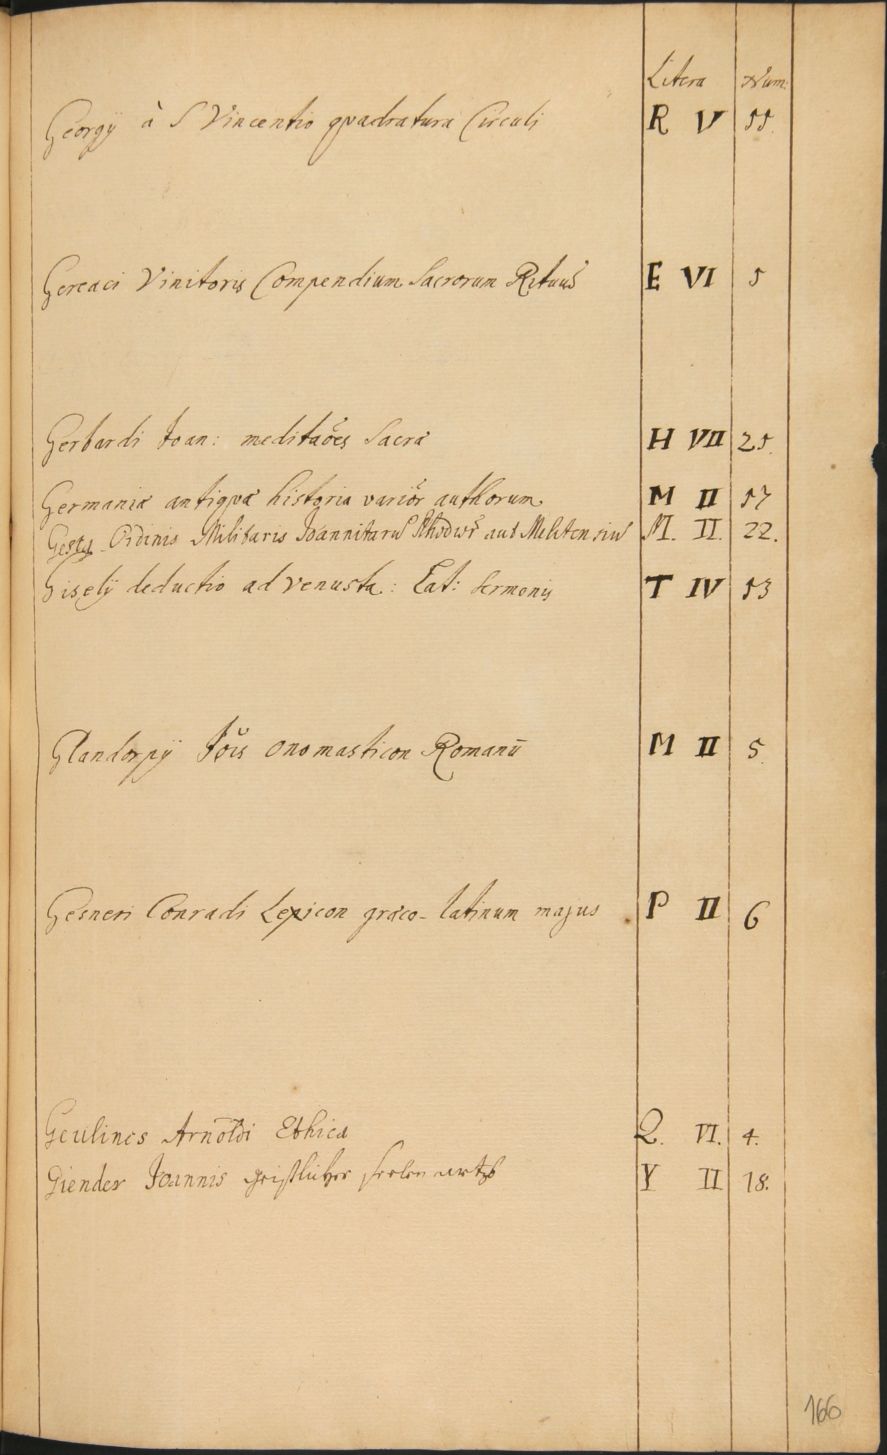 Litera Num:
Georgij à S Vincentio quadratura Circuli R V 55.
Gereaci Vinitoris Compendium Sacrorum Rituũ E VI 5
Gerhardi Joan: meditaões Sacræ H VII 25.
Germaniæ antiquæ historia variõr authorum M II 57
Gesta Ordinis Militaris Joannitarũ Rhodior̃ aut Melitensiũ M. II. 22.
Giselij deductio ad venusta: Lat: Sermonis T IV 53
Glandorpij Jõis Onomasticon Romanū M II 5.
Gesneri Conradi Lexicon græco-latinum majus P II 6
Geulincs Arnoldi Ethica Q. VI. 4.
Giender Joannis geistlicher seelen artzt Y II 18.
166